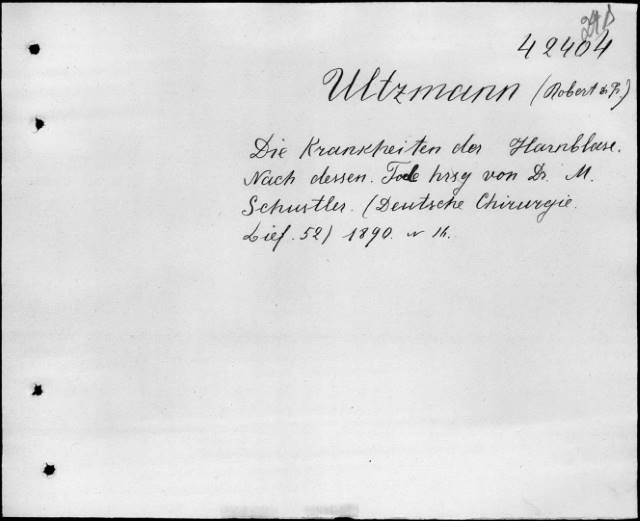 42404
Ultzmann (Robert
Die Krankheiten der Harnblase.
Nach dessen. Tode hrsg von Dr. M.
Schustler. (Deutsche Chirurgie.
Lief. 52) 1890.